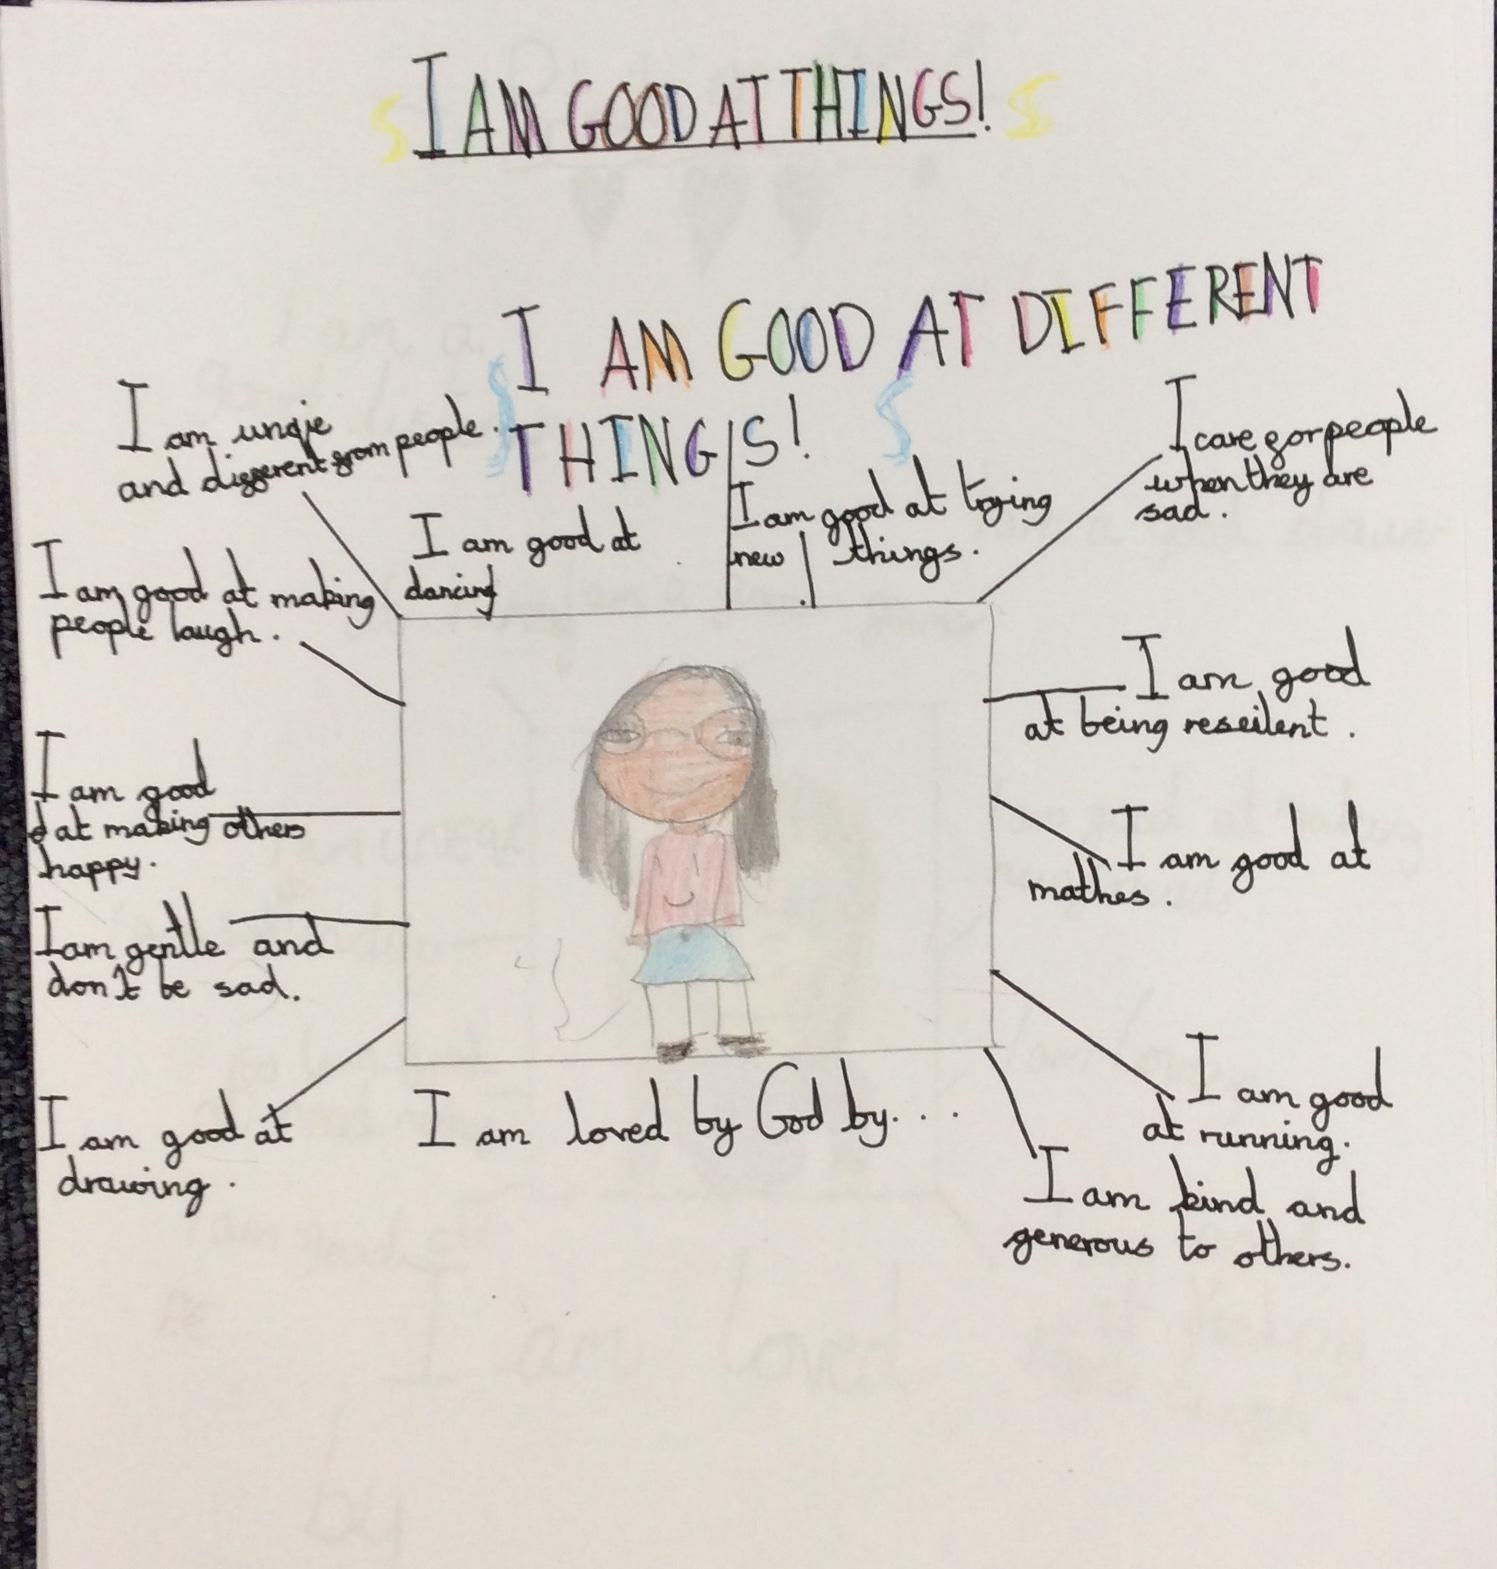 I AM GOOD AT THINGS!
I AM GOOD AT DIFFERENT
THINGS!
I am unqie
and different from people.
I am good at
dancing
I am good at trying
new things.
I care for people
when they are
sad.
I am good at making
people laugh.
I am good
at being reseilent.
I am good
at making others
happy.
I am good at
mathes.
I am gentle and
don't be sad.
I am good at
drawing.
I am loved by God by...
I am good
at running.
I am kind and
generous to others.